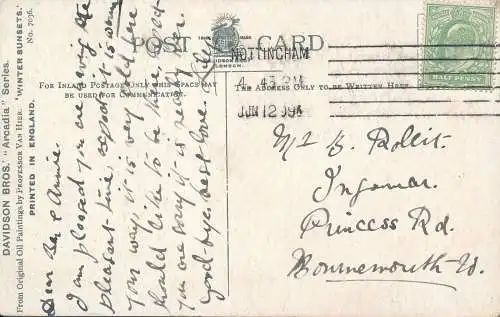 DAVIDSON BROS.' "Arcadia" Series.
From Original Oil Paintings by PROFESSOR VAN HIER. 'WINTER SUNSETS.' No. 7036.
PRINTED IN ENGLAND.
POST CARD
TRADE MARK
DAVIDSON BROS
LONDON.
FOR INLAND POSTAGE ONLY THIS SPACE MAY
BE USED FOR COMMUNICATION.
THE ADDRESS ONLY TO BE WRITTEN HERE.
NOTTINGHAM
4 45 PM
JUN 12 09
HALF PENNY
Dear & Annie.
I am pleased you are having the
pleasant time, expect it is warm
your way, it is very cold here
should like to be there, glad
you are say it is really
good-bye. best love.
Princess Rd.
Bournemouth-W.